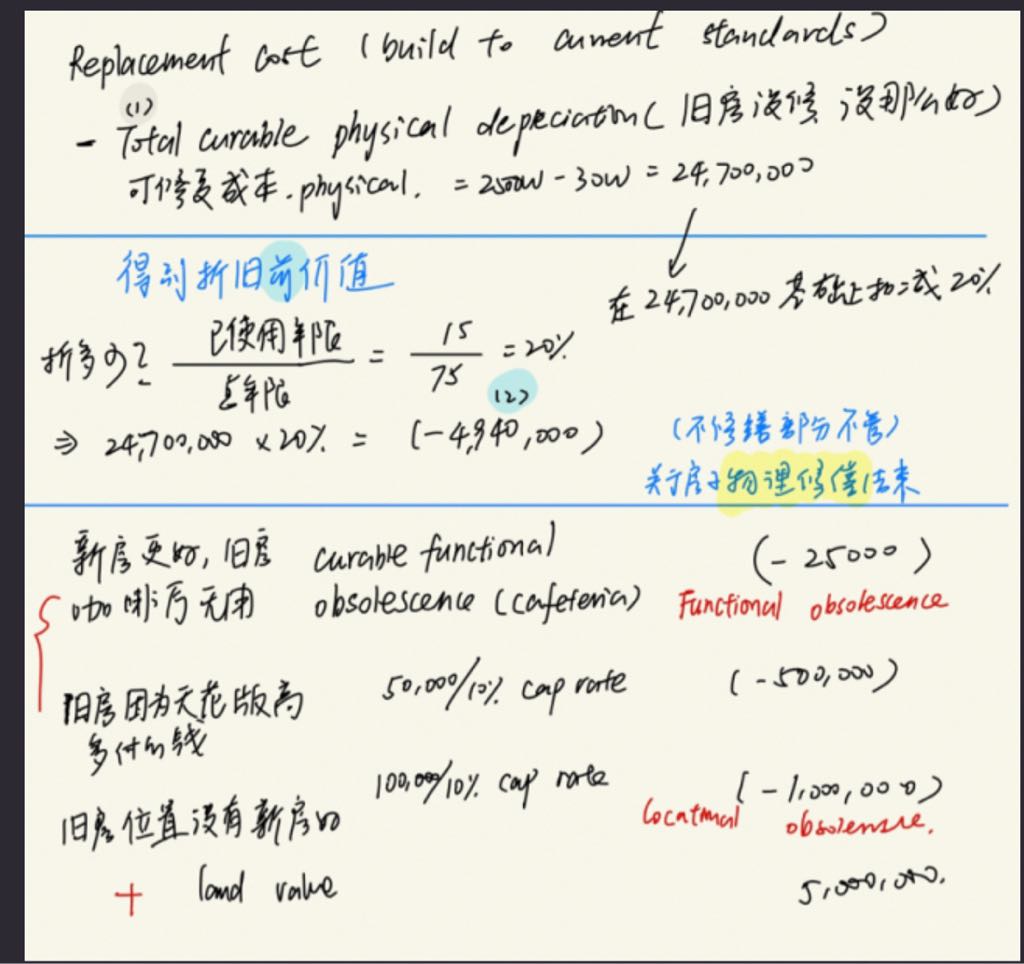 Replacement cost (build to current standards)
(1)
- Total curable physical depreciation (旧房没修 没那么好)
可修复成本.physical. = 2500W - 30W = 24,700,000
得到折旧前价值
在 24,700,000 基础上扣减 20%
折多少? 已使用年限 / 总年限 = 15 / 75 = 20%
(2)
⇒ 24,700,000 × 20% = (-4,940,000)
(不修缮部分不管)
关于房子物理修缮结束
新房更好, 旧房 curable functional (- 25000)
咖啡厅无用 obsolescence (cafeteria) Functional obsolescence
旧房因为天花版高 50,000/10% cap rate (-500,000)
多付的钱
100,000/10% cap rate (-1,000,000)
旧房位置没有新房好 Locational
+ land value 5,000,000.